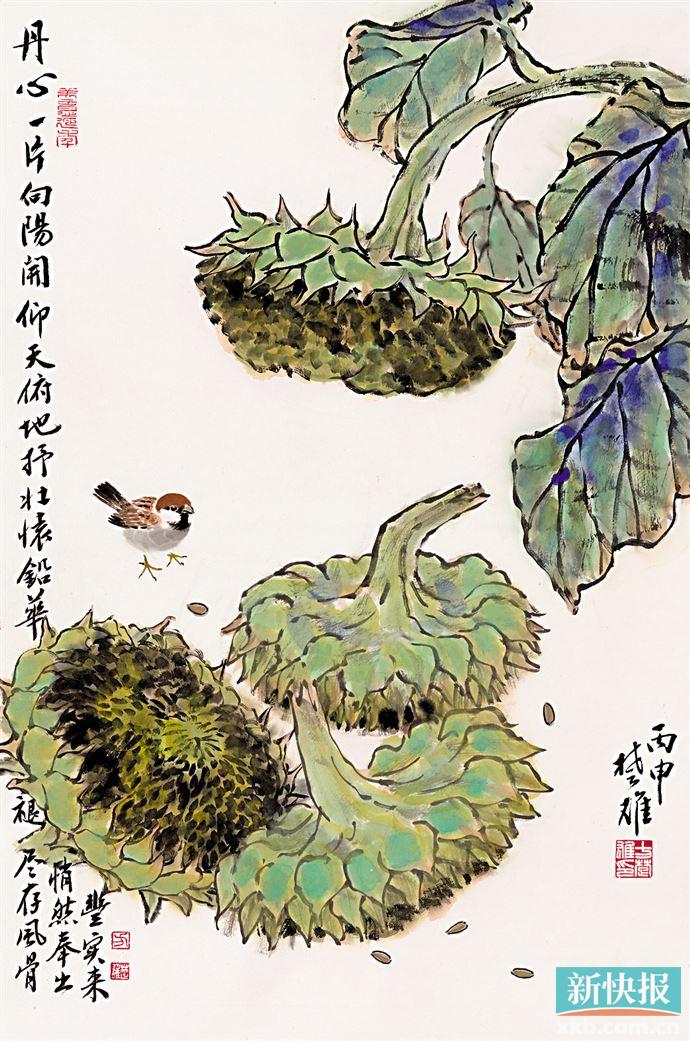 丹心一片向陽開仰天俯地抒壮懷鉛華
褪尽存风骨
悄然奉出
豐实来
丙申
楚雄
新快报
xkb.com.cn